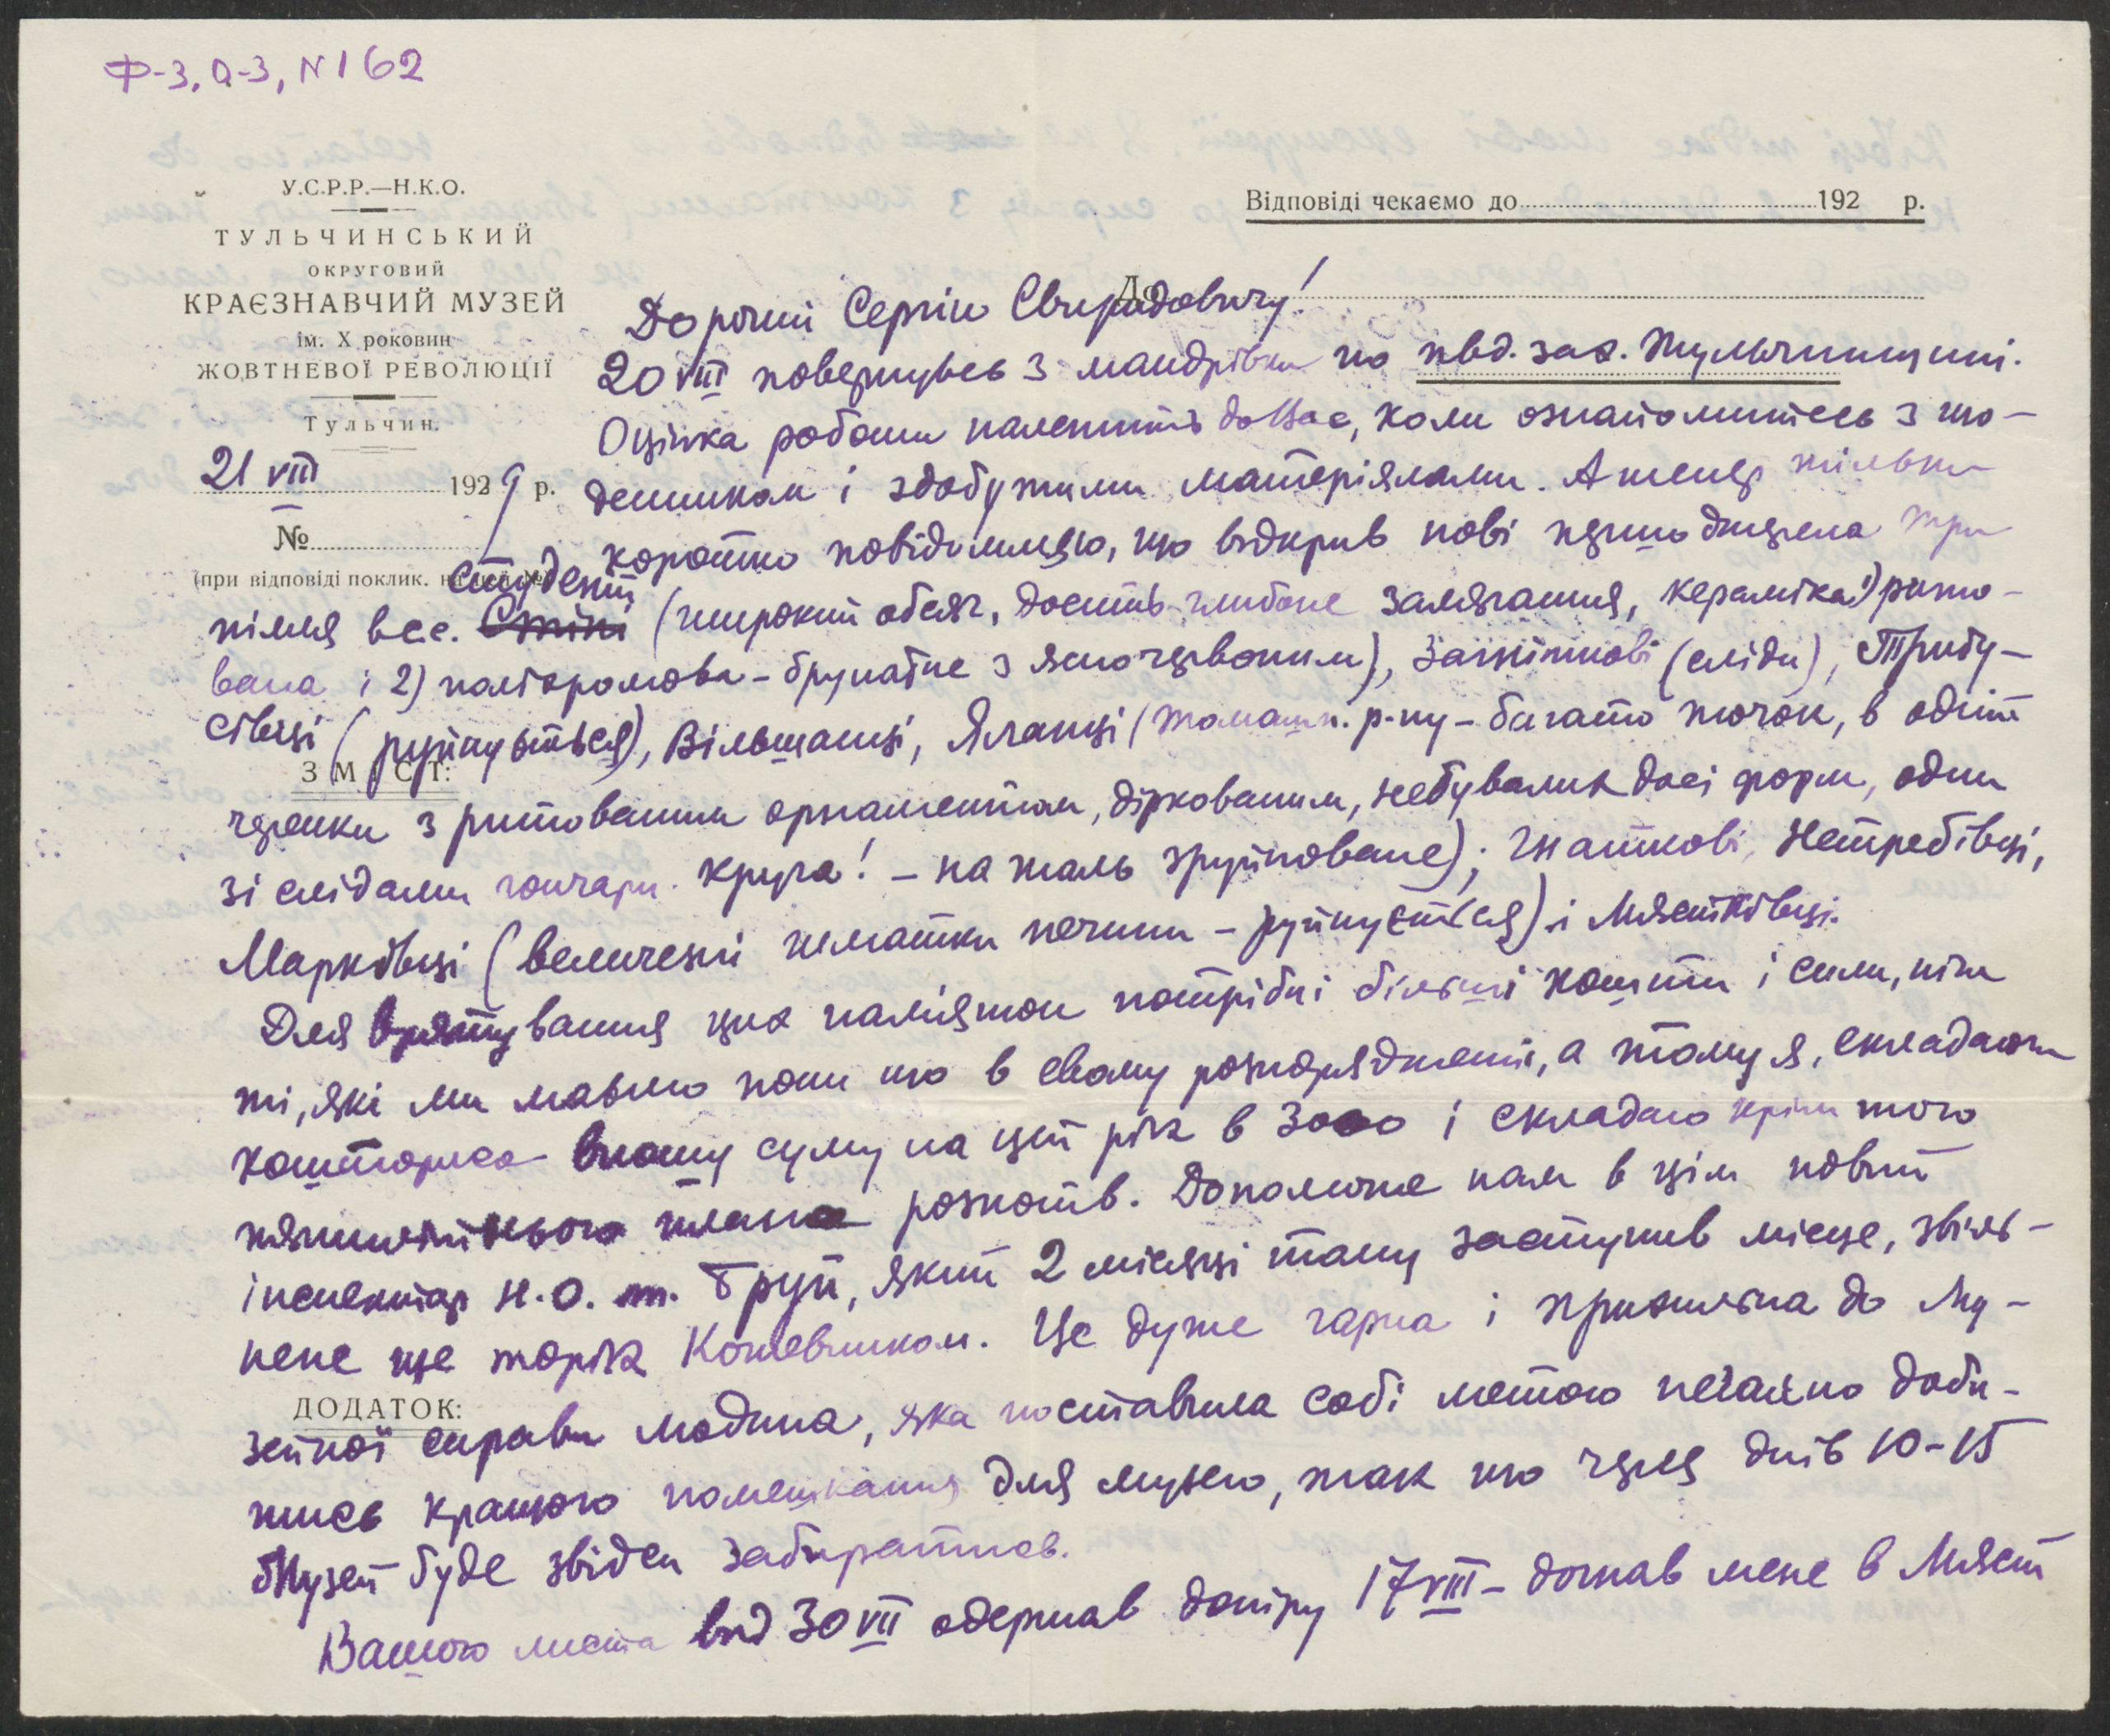 Ф-3, О-3, N 162
У.С.Р.Р.—Н.К.О.
ТУЛЬЧИНСЬКИЙ
ОКРУГОВИЙ
КРАЄЗНАВЧИЙ МУЗЕЙ
ім. X роковин
ЖОВТНЕВОЇ РЕВОЛЮЦІЇ
Тульчин.
21 VIII 1929 р.
№
(при відповіді поклик. на цей №)
Відповіді чекаємо до 192 р.
До
Дорогий Сергію Свиридовичу!
20 VIII повернувсь з мандрівки по півд. зах. Тульчинщині.
Оцінка роботи належить до Вас, коли ознайомитесь з що-
денником і здобутими матеріялами. А тепер тільки
коротко повідомляю, що відкрив нові перво джерела Три
пілля в с.с. Стіні Студені (широкий обсяг, досить глибоке залягання, кераміка 1) рито-
вана і 2) поліхромова - брунатне з ясночервоним), Загніткові (сліди), Трибу-
сівці (руйнується), Вільшанці, Яланці (Томашп. р-ну - багато точок, в одній
черепки з ритованим орнаментом, діркованим, небувалих досі форм, один
зі слідами гончарн. круга! - на жаль зруйноване); Гнаткові, Нетребівці,
Марківці (величезні шматки печини - руйнується) і Мястківці.
Для врятування цих памяток потрібні більші кошти і сили, ніж
ті, які ми маємо поки що в свому розпорядженні, а тому я, складаючи
кошториса вношу суму на цей рік в 3000 і складаю крім того
пятилітнього плана розкопів. Допоможе нам в цім новий
інспектор Н.О. т. Бруй, який 2 місяці тому заступив місце, звіль-
нене ще торік Кожевником. Це дуже гарна і прихильна до Му-
зейної справи людина, яка поставила собі метою негайно доби-
тись кращого помешкання для музею, так що через днів 10-15
Музей буде звідси забиратись.
Вашого листа від 30 VII одержав допіру 17 VIII - догнав мене в Мяст
ЗМІСТ:
ДОДАТОК: